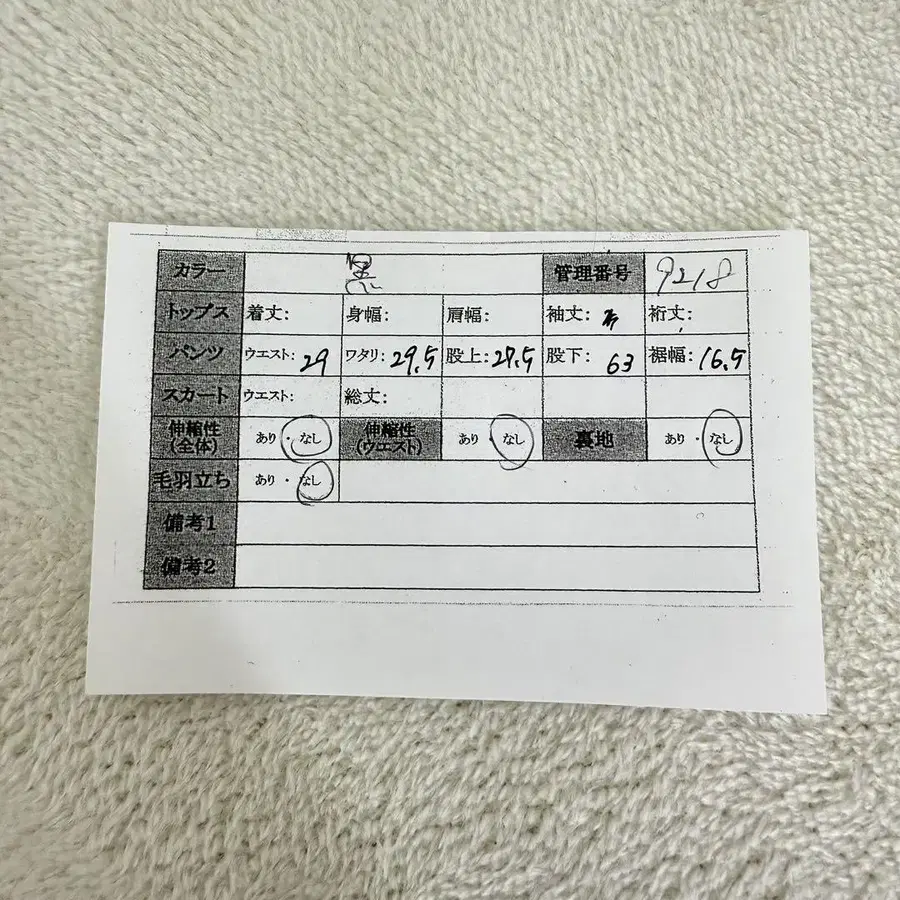 カラー 黒 管理番号 9218
トップス 着丈: 身幅: 肩幅: 袖丈: 裄丈:
パンツ ウエスト: 29 ワタリ: 29.5 股上: 27.5 股下: 63 裾幅: 16.5
スカート ウエスト: 総丈:
伸縮性 (全体) あり・なし 伸縮性 (ウエスト) あり・なし 裏地 あり・なし
毛羽立ち あり・なし
備考1
備考2